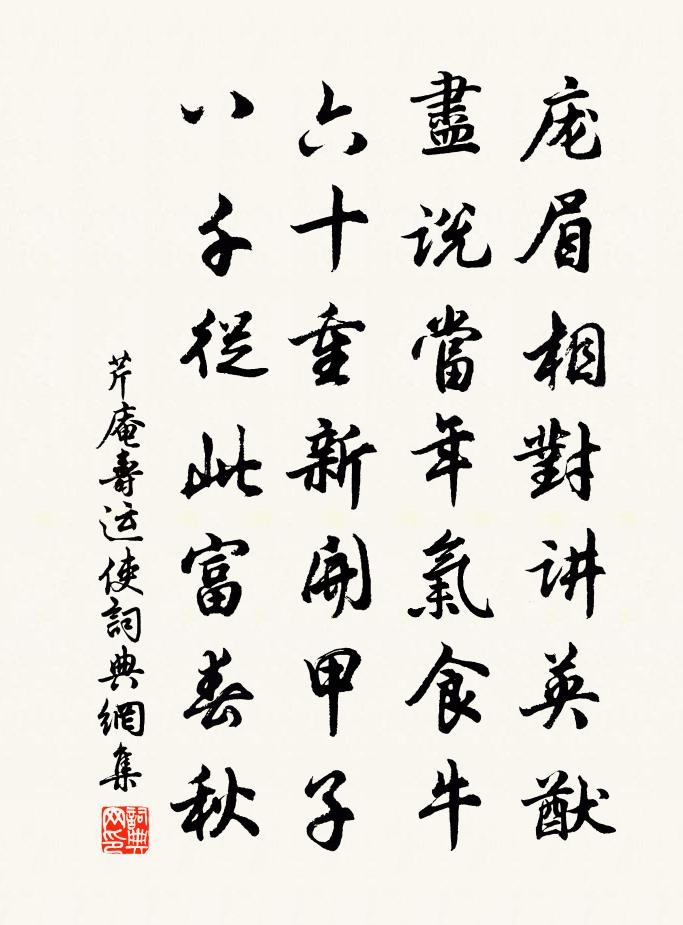 庞眉相對讲英猷
盡说當年氣食牛
六十重新開甲子
八千從此富春秋
芹庵壽运使詞典網集
詞典网印